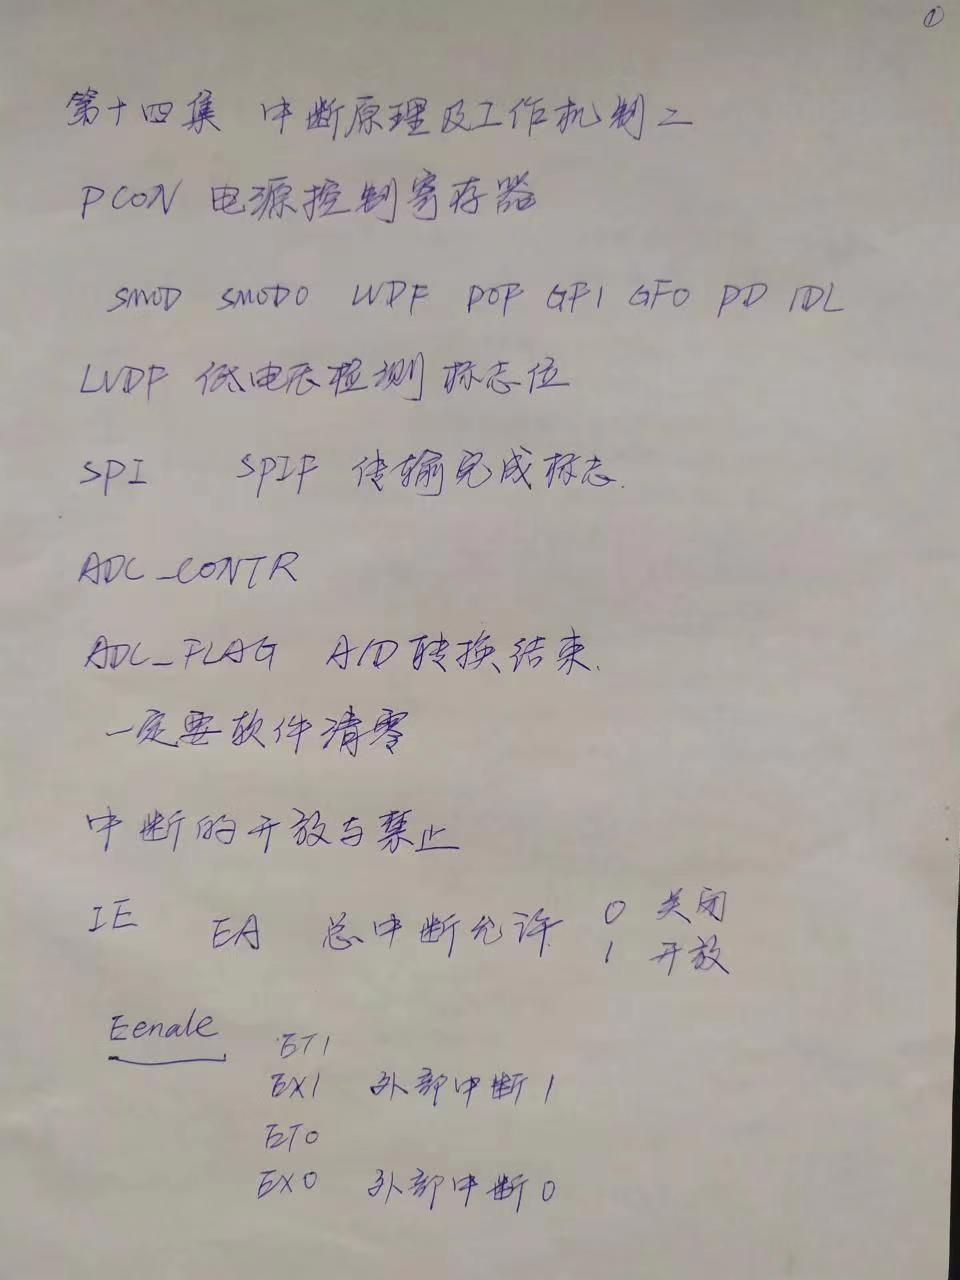 ①
第十四集 中断原理及工作机制二
PCON 电源控制寄存器
SMOD SMOD0 LVDF POF GF1 GF0 PD IDL
LVDF 低电压检测标志位
SPI SPIF 传输完成标志.
ADC_CONTR
ADC_FLAG A/D转换结束.
一定要软件清零
中断的开放与禁止
IE EA 总中断允许 0 关闭
1 开放
Eenale
ET1
EX1 外部中断1
ET0
EX0 外部中断0